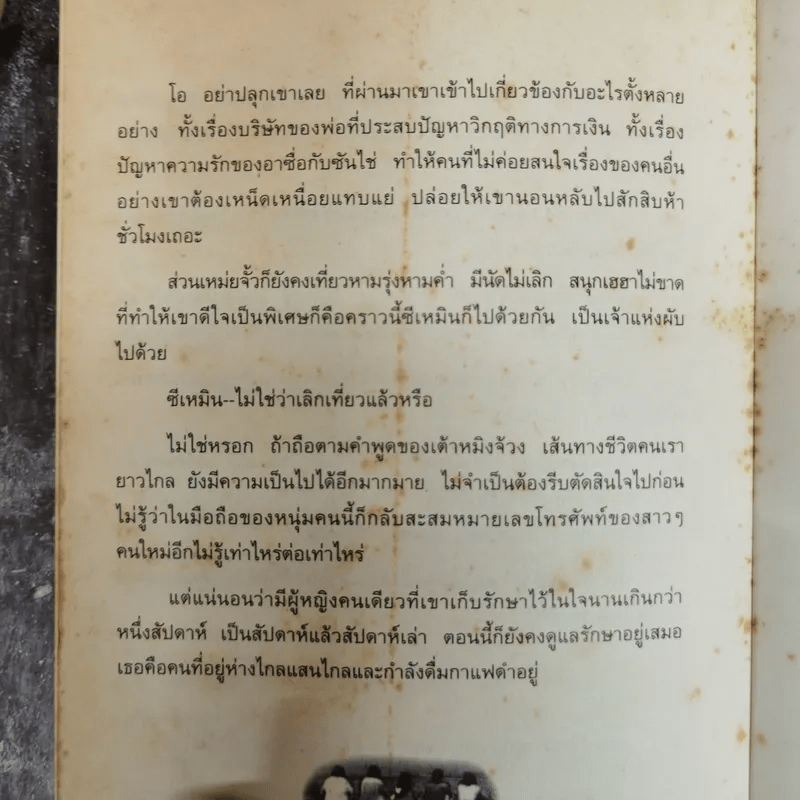 โอ อย่าปลุกเขาเลย ที่ผ่านมาเขาเข้าไปเกี่ยวข้องกับอะไรตั้งหลาย
อย่าง ทั้งเรื่องบริษัทของพ่อที่ประสบปัญหาวิกฤติทางการเงิน ทั้งเรื่อง
ปัญหาความรักของอาซื่อกับซันไช่ ทำให้คนที่ไม่ค่อยสนใจเรื่องของคนอื่น
อย่างเขาต้องเหน็ดเหนื่อยแทบแย่ ปล่อยให้เขานอนหลับไปสักสิบห้า
ชั่วโมงเถอะ
ส่วนเหม่ยจั้วก็ยังคงเที่ยวหามรุ่งหามค่ำ มีนัดไม่เลิก สนุกเฮฮาไม่ขาด
ที่ทำให้เขาดีใจเป็นพิเศษก็คือคราวนี้ซีเหมินก็ไปด้วยกัน เป็นเจ้าแห่งผับ
ไปด้วย
ซีเหมิน--ไม่ใช่ว่าเลิกเที่ยวแล้วหรือ
ไม่ใช่หรอก ถ้าถือตามคำพูดของเต้าหมิงจ้วง เส้นทางชีวิตคนเรา
ยาวไกล ยังมีความเป็นไปได้อีกมากมาย ไม่จำเป็นต้องรีบตัดสินใจไปก่อน
ไม่รู้ว่าในมือถือของหนุ่มคนนี้ก็กลับสะสมหมายเลขโทรศัพท์ของสาวๆ
คนใหม่อีกไม่รู้เท่าไหร่ต่อเท่าไหร่
แต่แน่นอนว่ามีผู้หญิงคนเดียวที่เขาเก็บรักษาไว้ในใจนานเกินกว่า
หนึ่งสัปดาห์ เป็นสัปดาห์แล้วสัปดาห์เล่า ตอนนี้ก็ยังคงดูแลรักษาอยู่เสมอ
เธอคือคนที่อยู่ห่างไกลแสนไกลและกำลังดื่มกาแฟดำอยู่